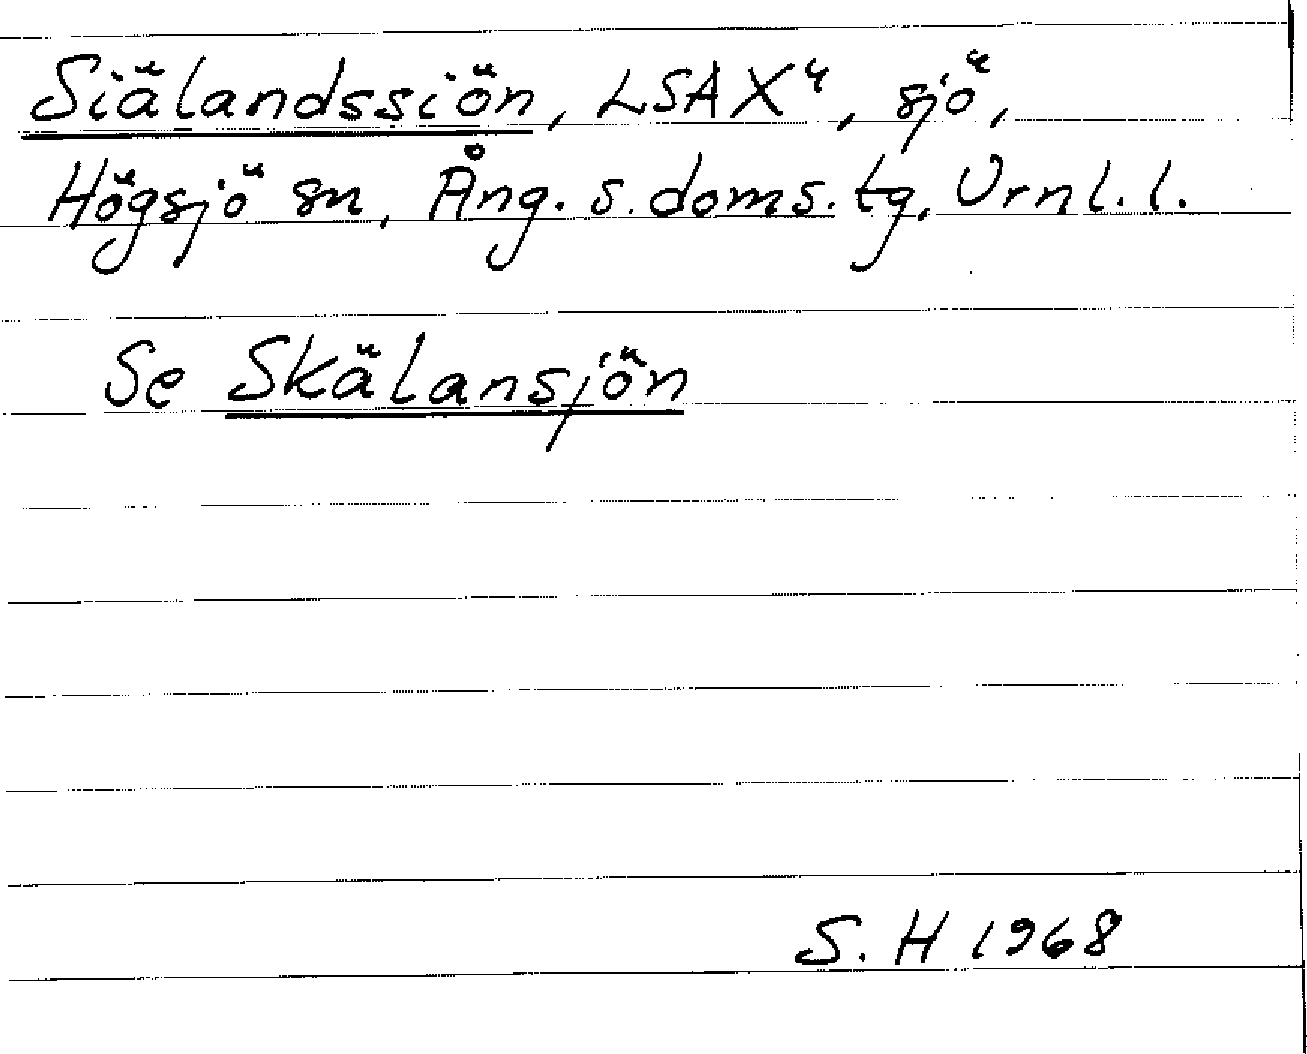 Siälandssiön, LSA X⁴, sjö,
Högsjö sn, Ång. s. doms. tg, Vrnl. l.
Se Skälansjön
S. H 1968